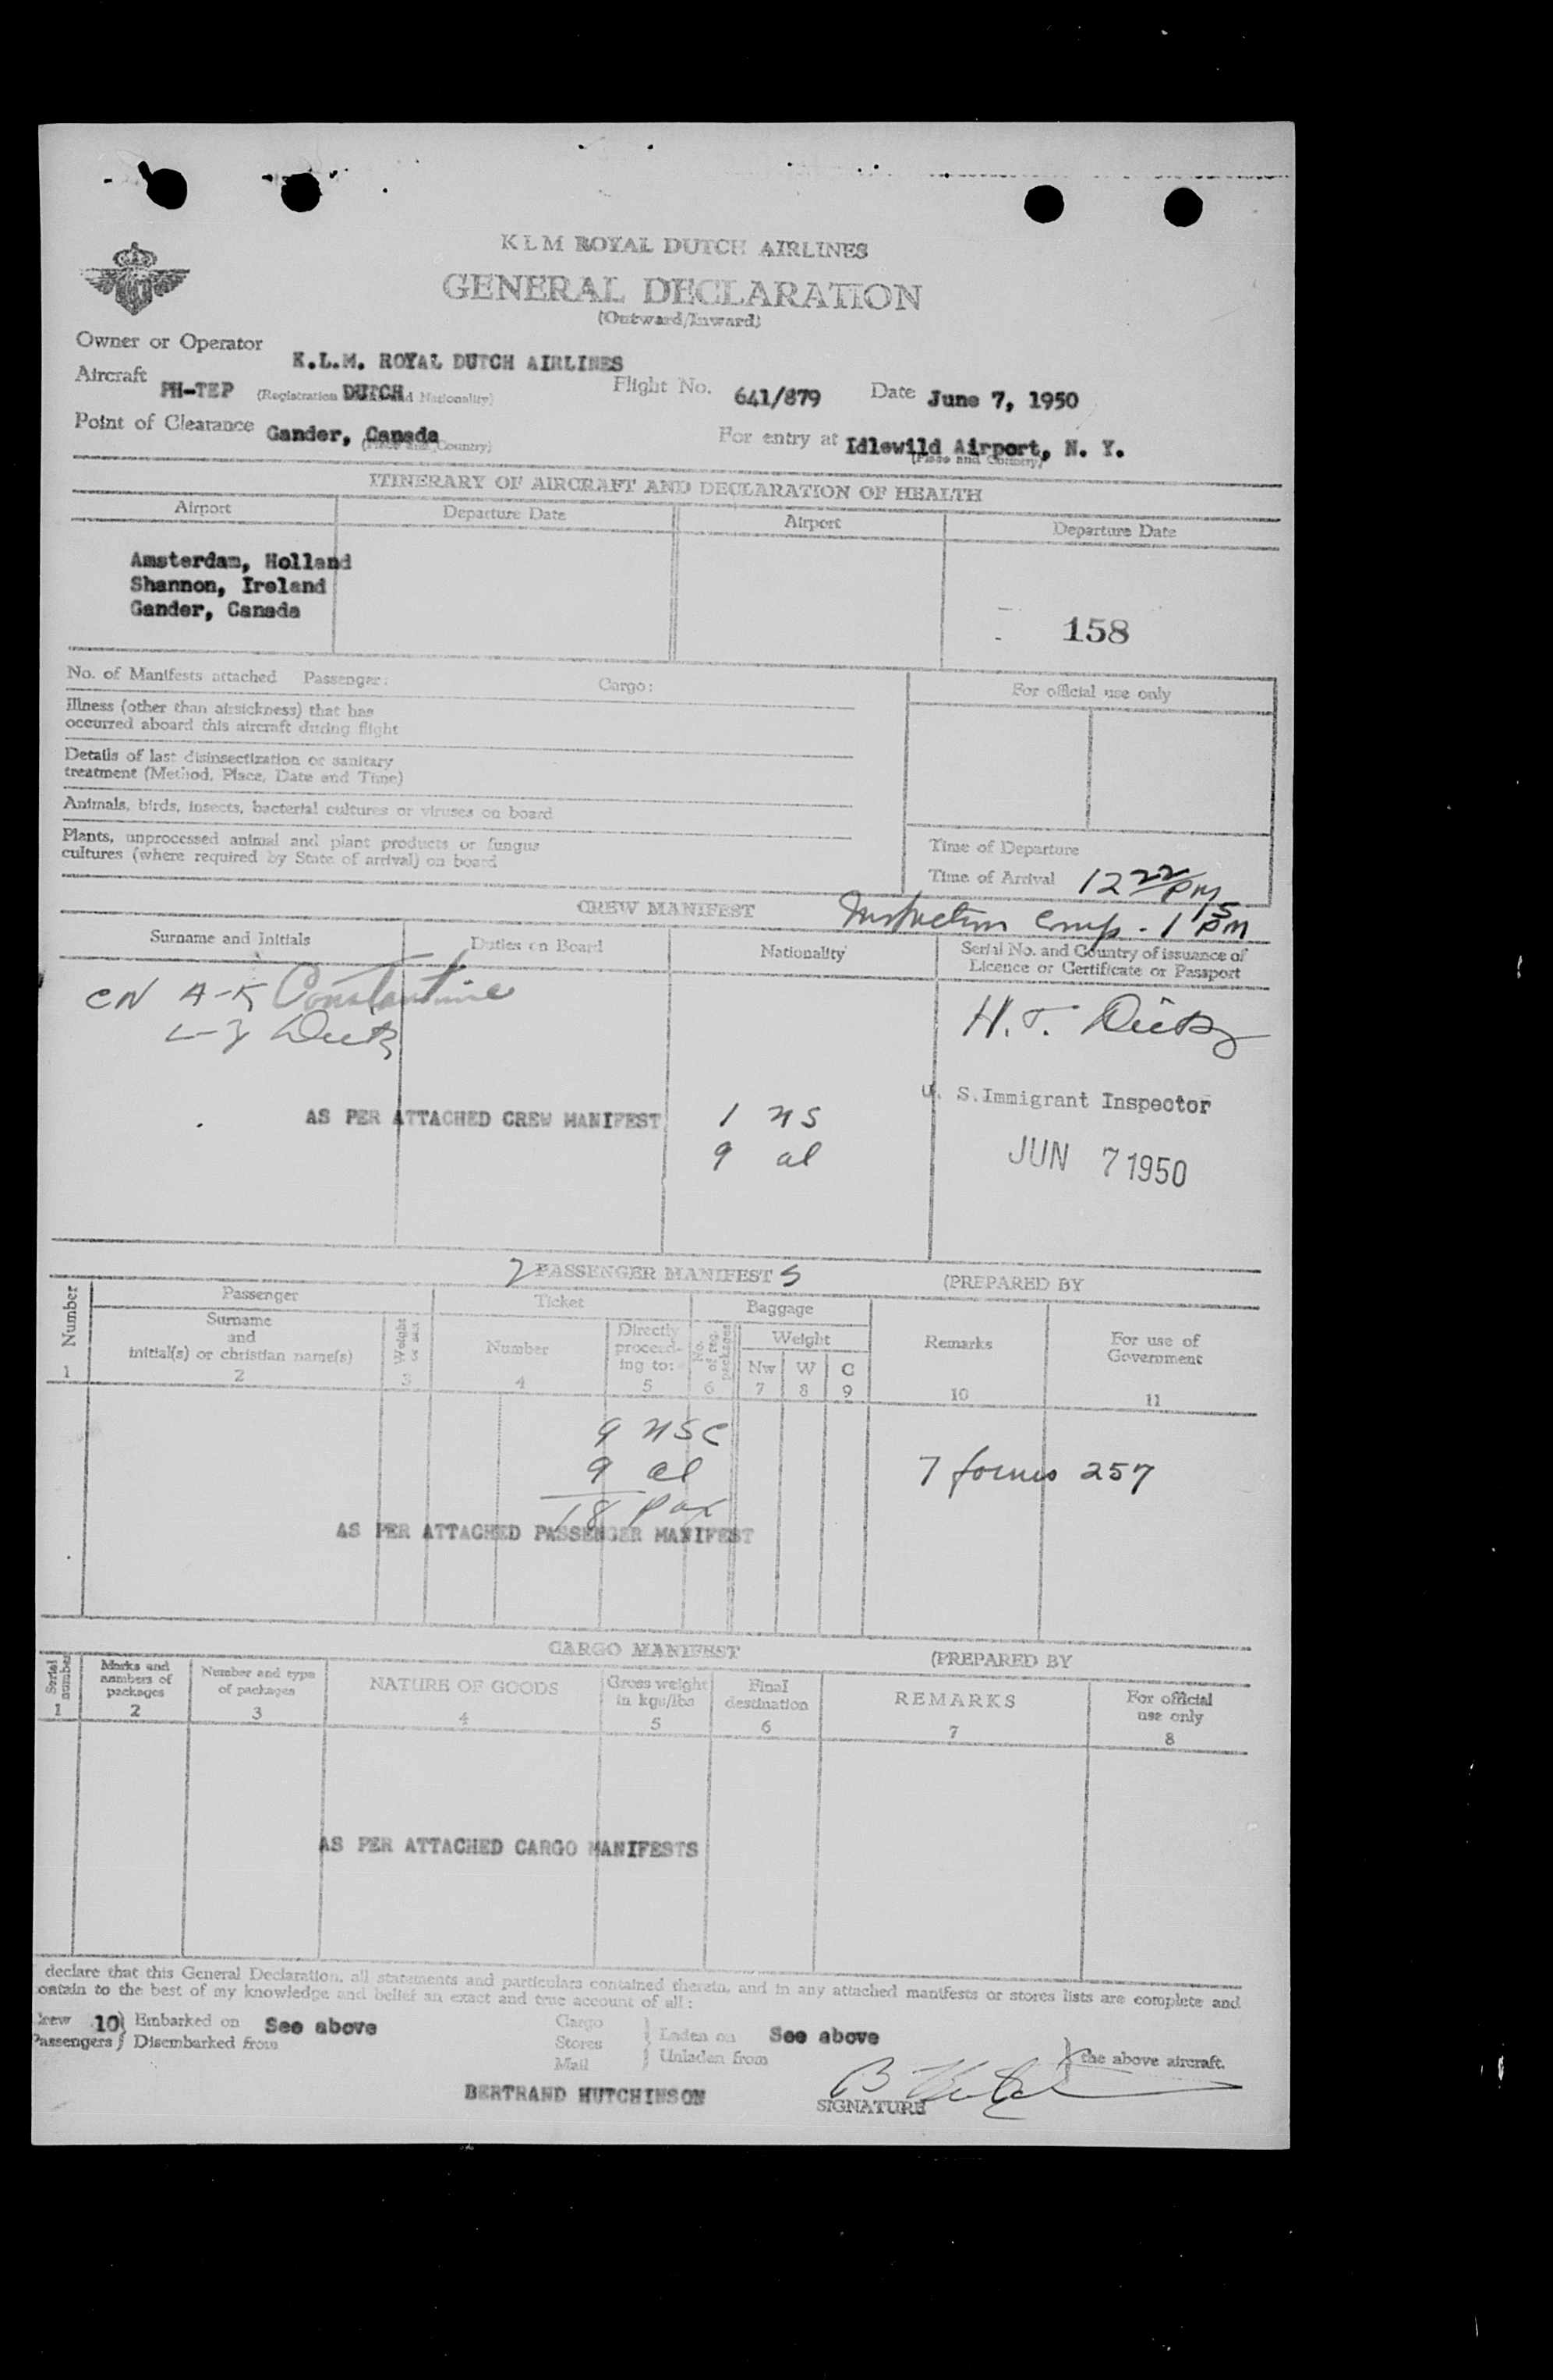 KLM ROYAL DUTCH AIRLINES
GENERAL DECLARATION
(Outward/Inward)
Owner or Operator K.L.M. ROYAL DUTCH AIRLINES
Aircraft PH-TEP (Registration and Nationality) DUTCH Flight No. 641/879 Date June 7, 1950
Point of Clearance Gander, Canada (Place and Country) For entry at Idlewild Airport, N. Y. (Place and Country)
ITINERARY OF AIRCRAFT AND DECLARATION OF HEALTH
Airport Departure Date Airport Departure Date
Amsterdam, Holland
Shannon, Ireland
Gander, Canada
158
No. of Manifests attached Passenger: Cargo:
For official use only
Illness (other than airsickness) that has
occurred aboard this aircraft during flight
Details of last disinsectization or sanitary
treatment (Method, Place, Date and Time)
Animals, birds, insects, bacterial cultures or viruses on board
Plants, unprocessed animal and plant products or fungus
cultures (where required by State of arrival) on board
Time of Departure
Time of Arrival 12 22 PM
CREW MANIFEST
Comp. - 1 15 PM
Surname and Initials Duties on Board Nationality Serial No. and Country of issuance of
Licence or Certificate or Passport
CN A-K Constantine
L-Z Dietz
H.T. Dietz
U. S. Immigrant Inspector
AS PER ATTACHED CREW MANIFEST
1 NS
9 al
JUN 7 1950
PASSENGER MANIFEST S (PREPARED BY
Number Passenger Ticket Baggage Remarks For use of
Government
Surname
and
initial(s) or christian name(s)
Weight Number Directly
proceed-
ing to:
No. of reg. packages
Weight
Nw W C
1 2 3 4 5 6 7 8 9 10 11
9 NSC
9 al
18 pax
7 forms 257
AS PER ATTACHED PASSENGER MANIFEST
CARGO MANIFEST (PREPARED BY
Serial number
Marks and
numbers of
packages
Number and type
of packages
NATURE OF GOODS
Gross weight
in kgs/lbs
Final
destination
REMARKS
For official
use only
1 2 3 4 5 6 7 8
AS PER ATTACHED CARGO MANIFESTS
declare that this General Declaration, all statements and particulars contained therein, and in any attached manifests or stores lists are complete and
ontain to the best of my knowledge and belief an exact and true account of all:
rew 10 } Embarked on See above
Passengers } Disembarked from
Cargo
Stores
Mail
} Laden on See above
} Unladen from
} the above aircraft.
BERTRAND HUTCHINSON
SIGNATURE